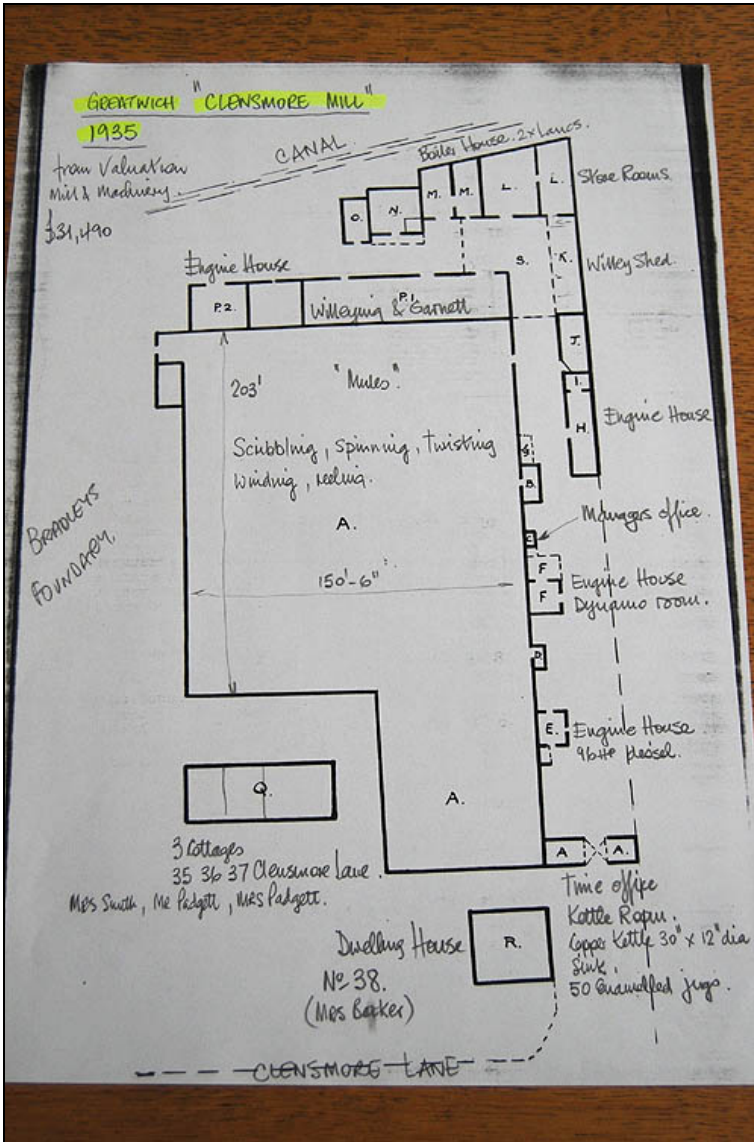 GREATWICH "CLENSMORE MILL"
1935
from Valuation
Mill & Machinery.
£31,490
CANAL
Boiler House. 2x Lancs.
O.
N.
M.
M.
L.
L.
Store Rooms.
S.
K.
Willey Shed.
Engine House
P2.
P.1.
Willeying & Garnett
J.
I.
H.
Engine House
203'
"Mules".
Scribbling, Spinning, Twisting
Winding, reeling.
A.
150'-6"
G.
B.
C
Managers office.
F
F
Engine House
Dynamo room.
D.
E.
Engine House
96HP Diesel.
BRADLEYS
FOUNDARY.
Q.
A.
3 Cottages
35 36 37 Clensmore Lane.
Mrs Smith, Mr Padgett, Mrs Padgett.
A
A.
Time office
Kettle Room.
Copper Kettle 30" x 12" dia
Sink.
50 Enamelled jugs.
Dwelling House
No 38.
(Mrs Barker)
R.
CLENSMORE LANE